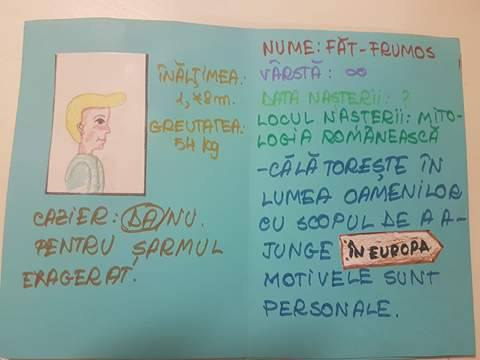 ÎNĂLȚIMEA:
1,78m.
GREUTATEA:
54 kg
CAZIER: DA/NU.
PENTRU ȘARMUL
EXAGERAT.
NUME: FĂT-FRUMOS
VÂRSTĂ: ∞
DATA NAȘTERII: ?
LOCUL NAȘTERII: MITO-
LOGIA ROMÂNEASCĂ
-CĂLĂTOREȘTE ÎN
LUMEA OAMENILOR
CU SCOPUL DE A A-
JUNGE ÎN EUROPA
MOTIVELE SUNT
PERSONALE.